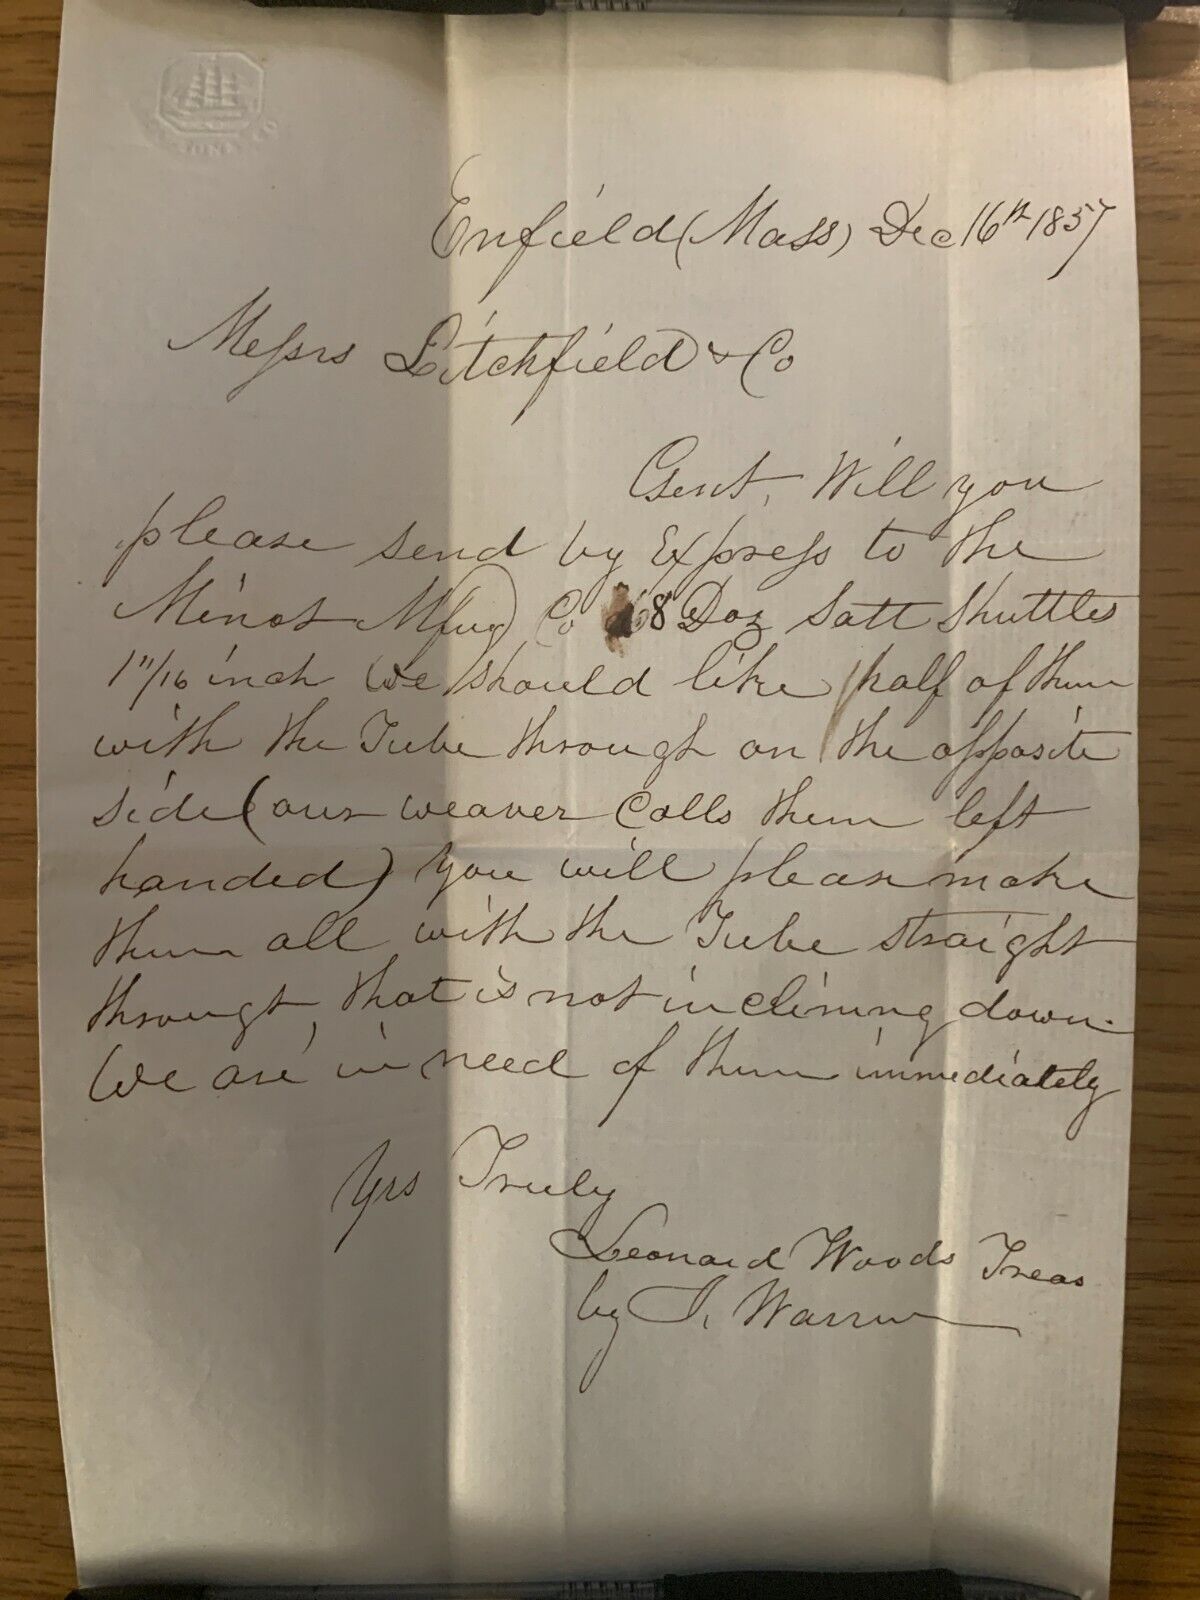 Enfield (Mass) Dec 16th 1857
Messrs Litchfield & Co
Gent, Will you
please send by Express to the
Minot Mfug Co 8 Doz Satt Shuttles
1"/16 inch We should like half of them
with the Tube through on the opposite
side (our weaver calls them left
handed) You will please make
them all with the Tube straight
through, that is not inclining down.
We are in need of them immediately
Yrs Truly
Leonard Woods Treas
by J. Warren